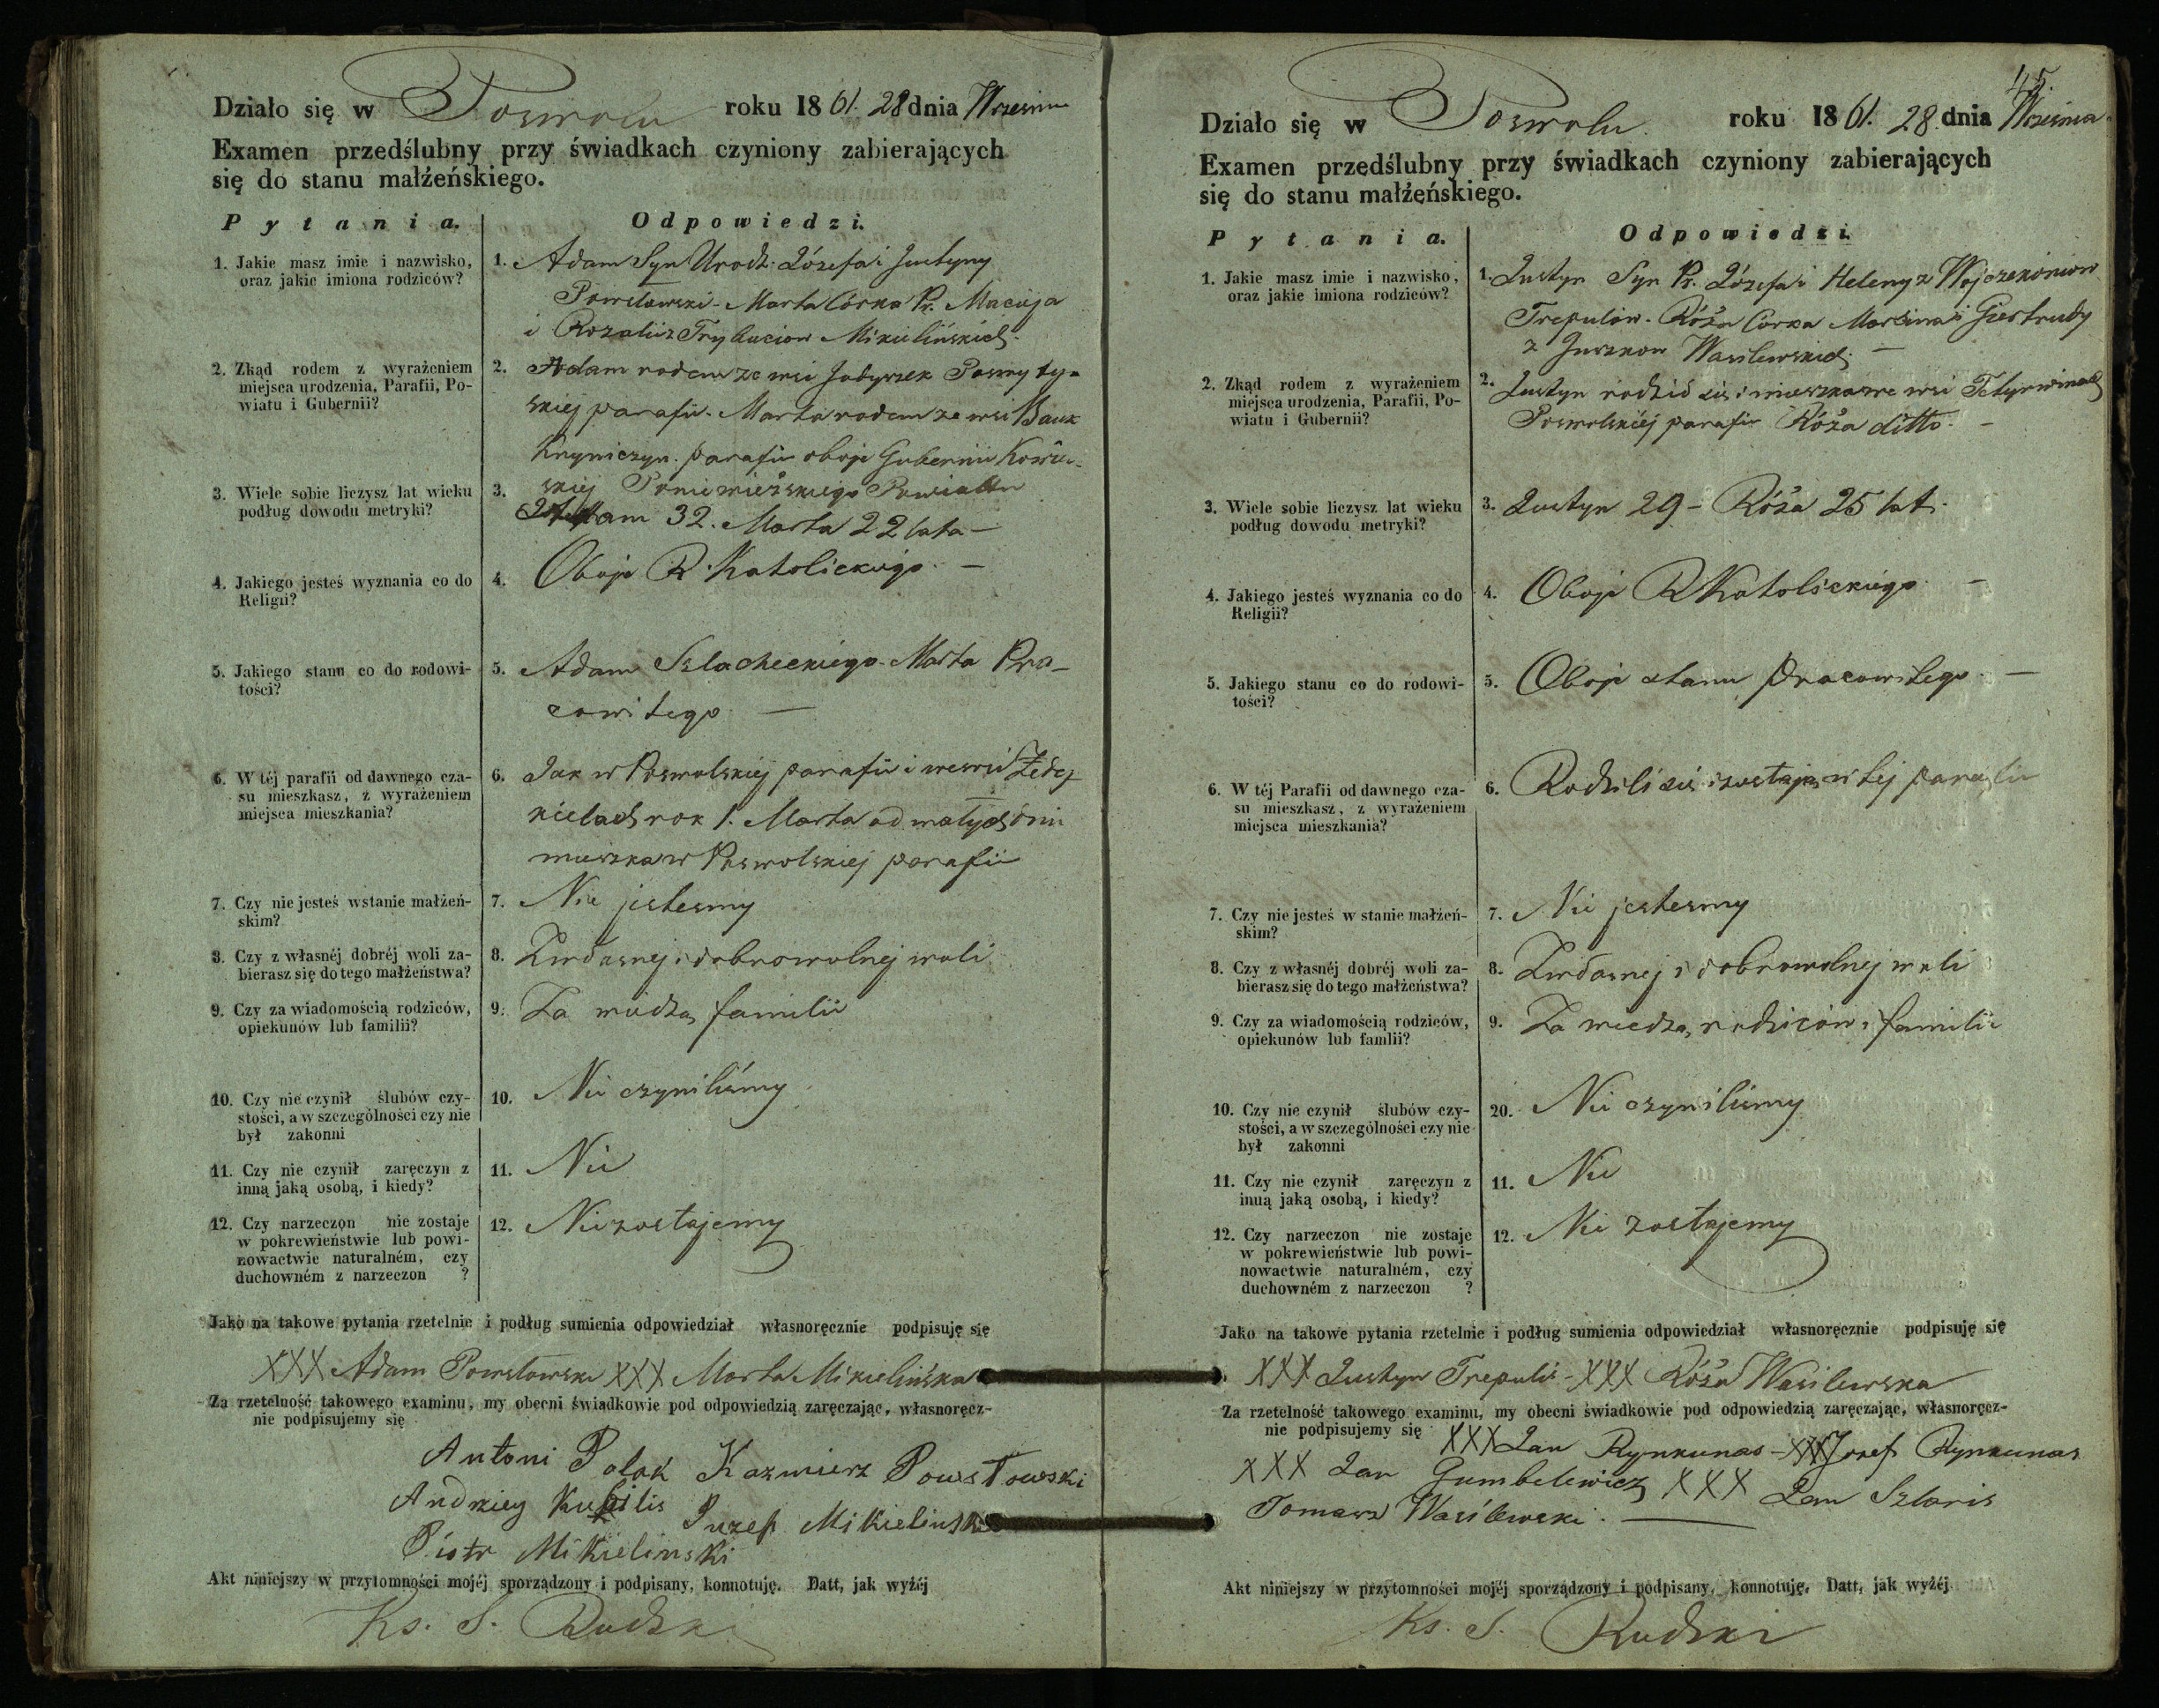 Działo się w Poswolu roku 1861. 28 dnia Wrzesnia
Examen przedślubny przy świadkach czyniony zabierających
się do stanu małżeńskiego.
Pytania. Odpowiedzi.
1. Jakie masz imie i nazwisko,
oraz jakie imiona rodziców?
1. Adam Syn Urodz. Józefa i Justyny
Powstowski - Marta Córka Pr. Macieja
i Rozalii z Trybuciow Mikielińskich.
2. Zkąd rodem z wyrażeniem
miejsca urodzenia, Parafii, Po-
wiatu i Gubernii?
2. Adam rodem ze wsi
skiej parafii. Marta rodem ze wsi
parafii oboje Gubernii Kowień-
skiej Poniewieżskiego Powiatu
3. Wiele sobie liczysz lat wieku
podług dowodu metryki?
3. Adam 32. Marta 22 lata —
4. Jakiego jesteś wyznania co do
Religii?
4. Oboje R. Katolickiego. —
5. Jakiego stanu co do rodowi-
tości?
5. Adam Szlacheckiego. Marta Pra-
cowitego —
6. W téj parafii od dawnego cza-
su mieszkasz, z wyrażeniem
miejsca mieszkania?
6. Jak w Poswolskiej parafii i we wsi
rok 1. Marta od małych dni
mieszka w Poswolskiej parafii
7. Czy nie jesteś wstanie małżeń-
skim?
7. Nie jestesmy
8. Czy z własnéj dobréj woli za-
bierasz się do tego małżeństwa?
8. Z własnej i dobrowolnej woli
9. Czy za wiadomością rodziców,
opiekunów lub familii?
9. Za wiedzą familii
10. Czy nie czynił ślubów czy-
stości, a w szczególności czy nie
był zakonni
10. Nie czyniliśmy
11. Czy nie czynił zaręczyn z
inną jaką osobą, i kiedy?
11. Nie
12. Czy narzeczon nie zostaje
w pokrewieństwie lub powi-
nowactwie naturalném, czy
duchowném z narzeczon ?
12. Nie zostajemy
Jako na takowe pytania rzetelnie i podług sumienia odpowiedział własnoręcznie podpisuję się
XXX Adam Powstowski XXX Marta Mikielińska
Za rzetelność takowego examinu, my obecni świadkowie pod odpowiedzią zaręczając, własnoręcz-
nie podpisujemy się
Antoni Polak Kazmierz Powstowski
Andrzey Kubilis Juzef Mikielinski
Piotr Mikielinski
Akt niniejszy w przytomności mojéj sporządzony i podpisany, konnotuję. Datt, jak wyżéj
Ks. S. Rudzki
45.
Działo się w Poswolu. roku 1861. 28. dnia Wrzesnia
Examen przedślubny przy świadkach czyniony zabierających
się do stanu małżeńskiego.
Pytania. Odpowiedzi.
1. Jakie masz imie i nazwisko,
oraz jakie imiona rodziców?
1. Justyn Syn Pr. Józefa i Heleny z
Trepulow. Róża Córka Marcina i Giertrudy
z Juszkow Wasilewskich. —
2. Zkąd rodem z wyrażeniem
miejsca urodzenia, Parafii, Po-
wiatu i Gubernii?
2. Justyn rodził się i mieszka we wsi Tetyrwinach
Poswolskiéj parafii Róża ditto. —
3. Wiele sobie liczysz lat wieku
podług dowodu metryki?
3. Justyn 29 - Róża 25 lat.
4. Jakiego jesteś wyznania co do
Religii?
4. Oboje R Katolickiego. —
5. Jakiego stanu co do rodowi-
tości?
5. Oboje stanu pracowitego. —
6. W téj Parafii od dawnego cza-
su mieszkasz, z wyrażeniem
miejsca mieszkania?
6. Rodzili się i zostają w tej parafii
7. Czy nie jesteś w stanie małżeń-
skim?
7. Nie jestesmy
8. Czy z własnéj dobréj woli za-
bierasz się do tego małżeństwa?
8. Z własnej i dobrowolnej woli
9. Czy za wiadomością rodziców,
opiekunów lub famlii?
9. Za wiedzą rodziców i familii
10. Czy nie czynił ślubów czy-
stości, a w szczególności czy nie
był zakonni
20. Nie czyniliśmy
11. Czy nie czynił zaręczyn z
inuą jaką osobą, i kiedy?
11. Nie
12. Czy narzeczon nie zostaje
w pokrewieństwie lub powi-
nowactwie naturalném, czy
duchowném z narzeczon ?
12. Nie zostajemy
Jako na takowe pytania rzetelnie i podług sumienia odpowiedział własnoręcznie podpisuję się
XXX Justyn Trepulis - XXX Róża Wasilewska
Za rzetelność takowego examinu, my obecni świadkowie pod odpowiedzią zaręczając, własnoręcz-
nie podpisujemy się XXX Jan Rynkunas - XXX Josef Rynkunas
XXX Jan Gumbelewicz XXX Jan Szlaris
Tomasz Wasilewski. —
Akt niniejszy w przytomności mojéj sporządzony i podpisany, konnotuję. Datt, jak wyżéj
Ks. S. Rudzki